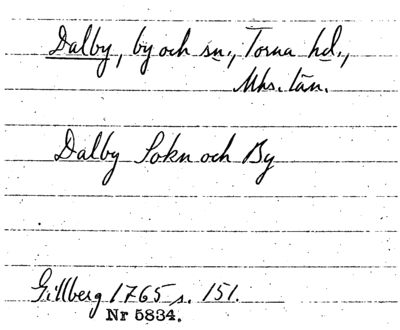 Dalby, by och sn., Torna hd.,
Mhs. län.
Dalby Sokn och By
Gillberg 1765 s. 151.
Nr 5834.